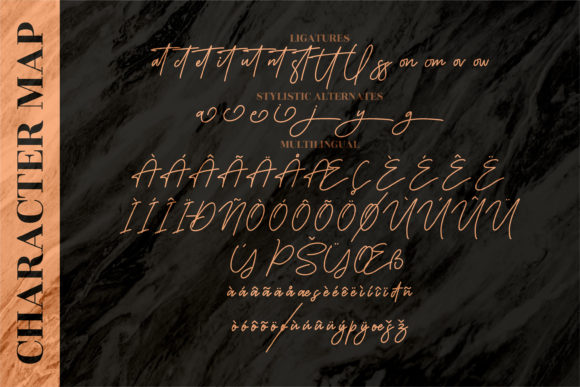 CHARACTER MAP
LIGATURES
at ct et it ut nt st tt tl ss on om ov ow
STYLISTIC ALTERNATES
j y g
MULTILINGUAL
ÀÁÂÃÄÅÆÇÈÉÊË
ÌÍÎÏÐÑÒÓÔÕÖØÙÚÛÜ
ÝÞŠŸŒß
àáâãäåæçèéêëìíîïðñ
òóôõöøùúûüýþÿœšž